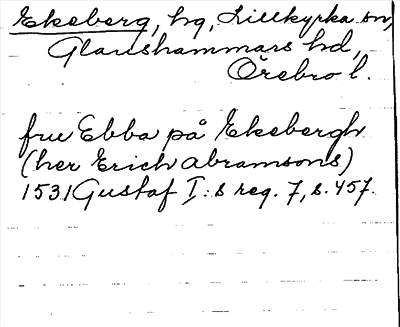 Ekeberg, hg, Lillkyrka sn,
Glanshammars hd,
Örebro l.
fru Ebba på Ekebergh
(her Erich Abramsons)
1531 Gustaf I:s reg. 7, s. 457.